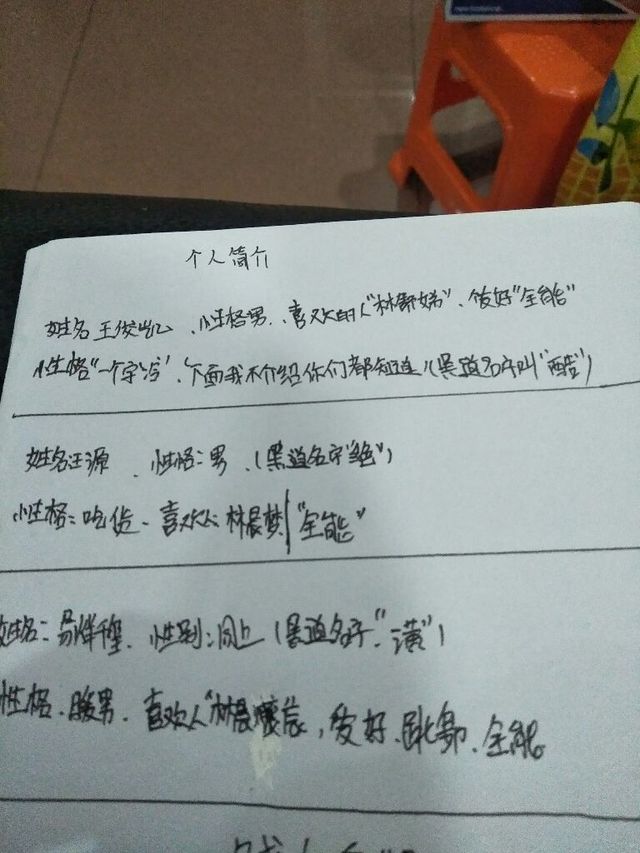 个人简介
姓名王俊凯、性格男、喜欢的人"林舒娣"、爱好"全能"
性格"一个字冷"、下面我不介绍你们都知道(黑道名字叫"酷")
姓名王源、性格:男、(黑道名字"绝")
性格:吃货、喜欢人:林晨梦"全能"
姓名:易烊千玺、性别:同上(黑道名字:"潢")
性格、暖男、喜欢人"林晨,爱好、跳舞、全能。